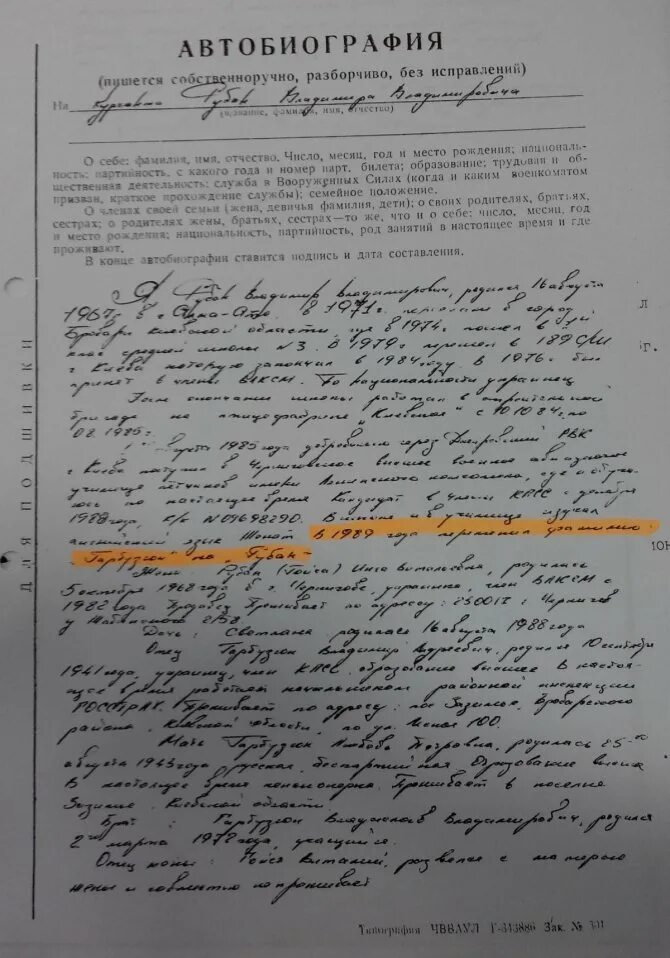 АВТОБИОГРАФИЯ
(пишется собственноручно, разборчиво, без исправлений)
На курсанта Рубан Владимира Владимировича
(звание, фамилия, имя, отчество)
О себе: фамилия, имя, отчество. Число, месяц, год и место рождения; националь-
ность; партийность, с какого года и номер парт. билета; образование; трудовая и об-
щественная деятельность; служба в Вооруженных Силах (когда и каким военкоматом
призван, краткое прохождение службы); семейное положение.
О членах своей семьи (жена, девичья фамилия, дети); о своих родителях, братьях,
сестрах; о родителях жены, братьях, сестрах—то же, что и о себе: число, месяц, год
и место рождения; национальность, партийность, род занятий в настоящее время и где
проживают.
В конце автобиографии ставится подпись и дата составления.
Я Рубан Владимир Владимирович, родился 16 августа
1967 г. в г. Алма-Ата. В 1971 г. в город
Бровари Киевской области, где в 1974 г. пошел в
клас средней школы №3. В 1979 г. перешел в 189 СШ
г Киева которую закончил в 1984 году. В 1976 г. был
принят в члены ВЛКСМ. По национальности украинец
После окончания школы работал в строительной
бригаде на птицефабрике "Киевская" с 10.10.84 г. по
08.1985 г.
В августе 1985 года через Днепровский РВК
г Киева поступил в Черниговское высшее военное авиационное
училище летчиков имени Ленинского комсомола, где и обуча-
юсь по настоящее время Кандидат в члены КПСС с декабря
1988 года, к/к №09698290. В школе и в училище изучал
английский язык. В 1989 года переменил фамилию
"Гарбузюк" на "Рубан"
Жена Рубан (Гойса) Инга Витальевна, родилась
5 октября 1968 года в г. Чернигове, украинка, член ВЛКСМ с
1982 года Проживает по адресу: 250017 г Чернигов
у
Дочь: Светлана родилась 16 августа 1988 года
Отец Гарбузюк Владимир Андреевич, родился 10 сентября
1941 года, украинец, член КПСС, образование высшее В настоя-
щее время работает начальником районной инспекции
ГОССТРАХ. Проживает по адресу: пос Зазимье, Броварского
района, Киевской области, по ул. 100.
Мать Гарбузюк Любовь Петровна, родилась 25
августа 1943 года русская, беспартийная, Образование высшее
В настоящее время пенсионерка. Проживает в поселке
Зазимье Киевской области.
Брат: Гарбузюк Владислав Владимирович, родился
2 марта 1972 года, учащийся.
Отец жены: Гойса Виталий, разведен с матерью
жены и совместно не проживает
ДЛЯ ПОДШИВКИ
Л
г.
ЮН
Типография ЧВВАУЛ Г-343886 Зак. №